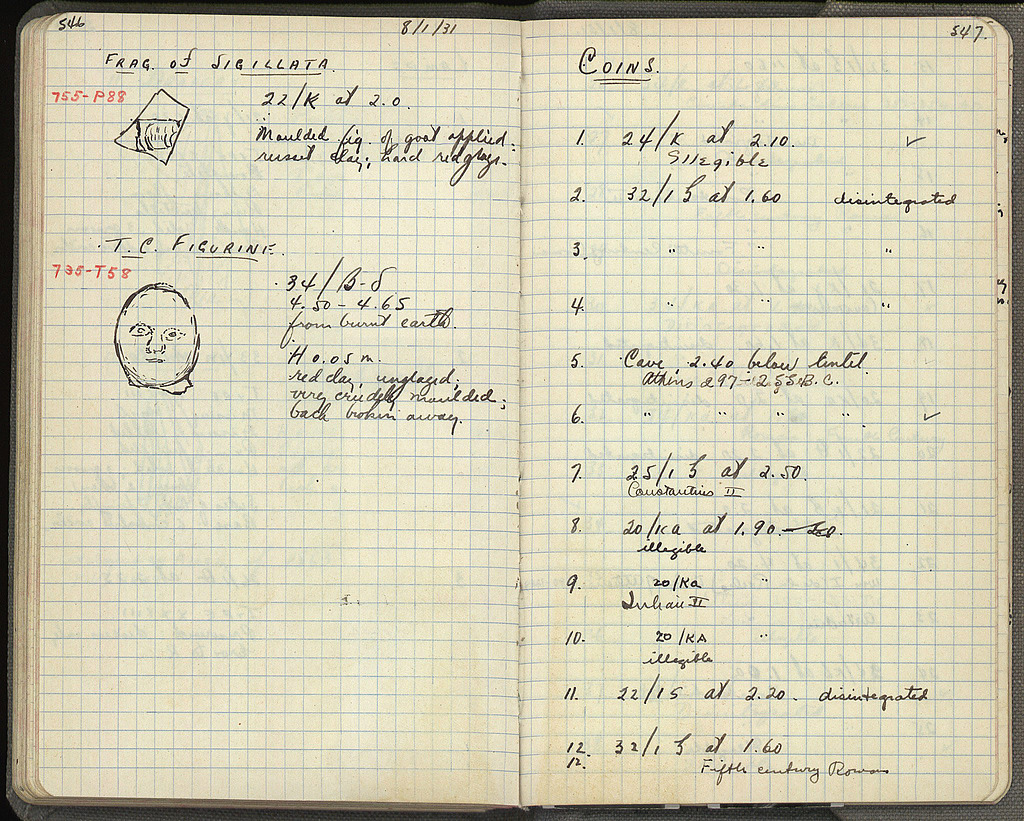 546
8/1/31
FRAG. of SIGILLATA.
755-P88
22/K at 2.0.
Moulded fig. of goat applied:
russet clay; hard red glaze.
T.C. FIGURINE.
735-T58
34/B-
4.50-4.65
from burnt earth.
H 0.05 m.
red clay, unglazed;
very crudely moulded;
back broken away.
547.
COINS.
1. 24/K at 2.10. ✓
Illegible
2. 32/1 at 1.60 disintegrated
3. " " "
4. " " "
5. Cave, 2.40 below lintel.
Athens 297-255 B.C.
6. " " " " " ✓
7. 25/1 at 2.50.
Constantius II
8. 20/KA at 1.90.
illegible
9. 20/KA "
Julian II
10. 20/KA "
illegible
11. 22/15 at 2.20. disintegrated
12. 32/1 at 1.60
12. Fifth century Roman